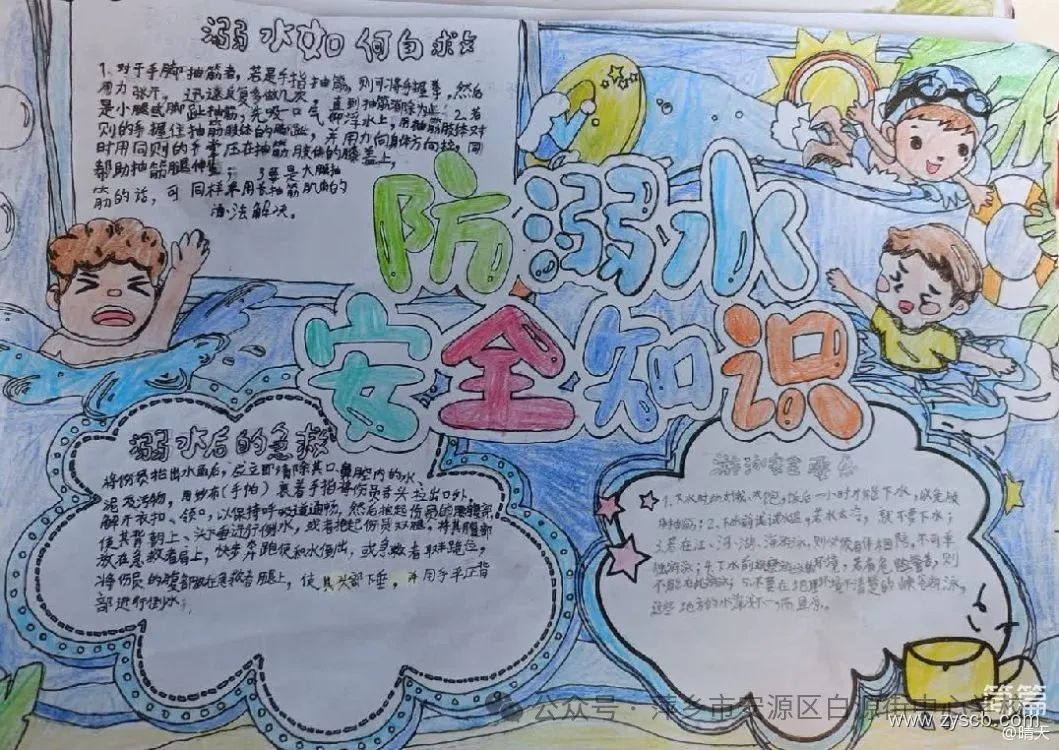 溺水如何自救
1、对于手脚抽筋者，若是手指抽筋，则可将手握拳，然后
用力张开，迅速反复多做几次，直到抽筋消除为止；2、若
是小腿或脚趾抽筋，先吸一口气仰浮水上，用抽筋肢体对
则的手握住抽筋肢体的脚趾，并用力向身体方向拉，同
时用同则的手掌压在抽筋肢体的膝盖上，
帮助抽筋腿伸直；3要是大腿抽
筋的话，可同样采用长抽筋肌肉的
办法解决。
防溺水
安全知识
溺水后的急救
将伤员抬出水面后，应立即清除其口、鼻腔内的水、
泥及污物，用纱布(手帕)裹着手指将伤员舌头拉出口外，
解开衣扣、领口，以保持呼吸道通畅，然后抱起伤员的腰腹部，
使其背朝上、头下垂进行倒水，或者抱起伤员双腿，将其腹部
放在急救者肩上，快步奔跑使积水倒出，或急救者取半跪位，
将伤员的腹部放在急救者腿上，使其头部下垂，并用手平压背
部进行倒水；
游泳安全要
1、下水时 饭后一小时才能下水，以免
抽筋；2、下水前试试水温，若水太冷，就不要下水；
3若在江、河、湖、海游泳，则必须有伴相陪，不可单
独游泳；4、下水前 环境，若有危险警告，则
不能在此游泳；5、不要在地理环境不清楚的峡谷游泳，
这些地方的水深浅不一，而且凉。
公众号·萍乡市安源区白源街中心学校
篇篇
www.zyscb.com
@晴天